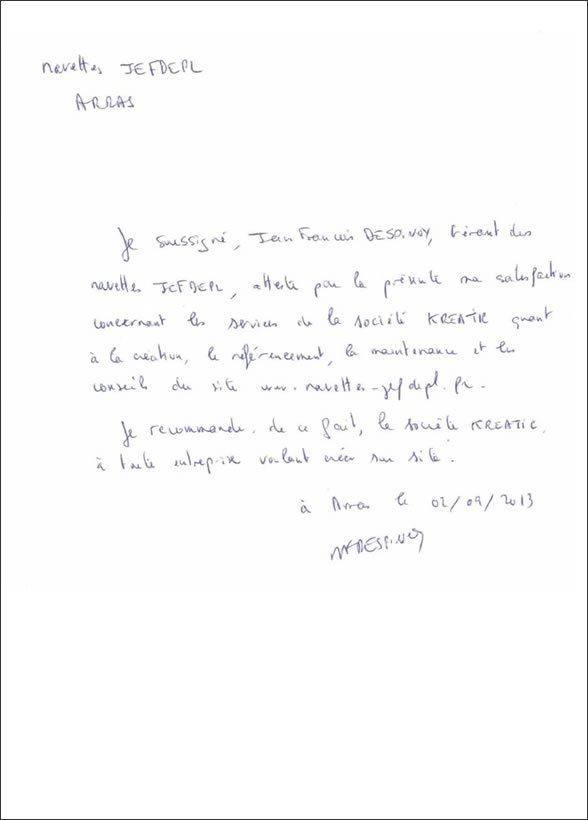 navettes JEFDEPL
ARRAS
Je soussigné, Jean François DESPINOY, Gérant des
navettes JEFDEPL, atteste par la présente ma satisfaction
concernant les services de la société KREATIC quant
à la création, le référencement, la maintenance et les
conseils du site www.navettes-jefdepl.fr.
Je recommande, de ce fait, la société KREATIC,
à toute entreprise voulant créer son site.
à Arras le 02/09/2013
JFDESPINOY